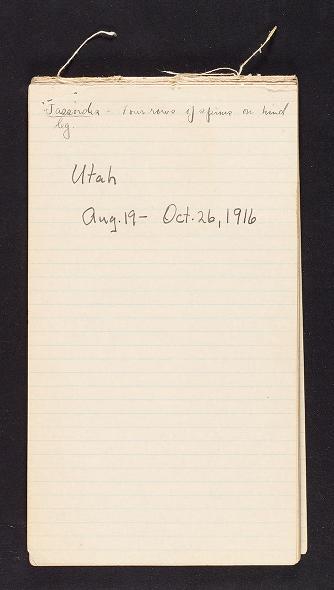 "Jassoidea" - Four rows of spines on hind
leg.
Utah
Aug. 19 - Oct. 26, 1916